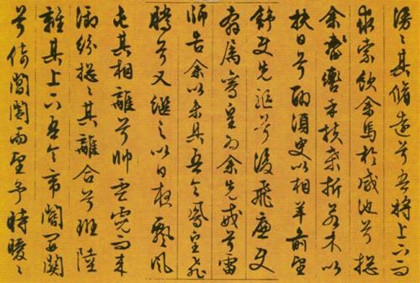 漫々其脩遠兮吾將上下而
求索飲余馬於咸池兮揔
余轡乎扶桑折若木以
拂日兮聊須臾以相羊前望
舒使先驅兮後飛廉使
奔屬鸞皇為余先戒兮雷
師告余以未具吾令鳳皇飛
騰兮又繼之以日夜飄風
屯其相離兮帥雲霓而來
御紛揔々其離合兮班陸
離其上下吾令帝閽開關
兮倚閶闔而望予時曖々